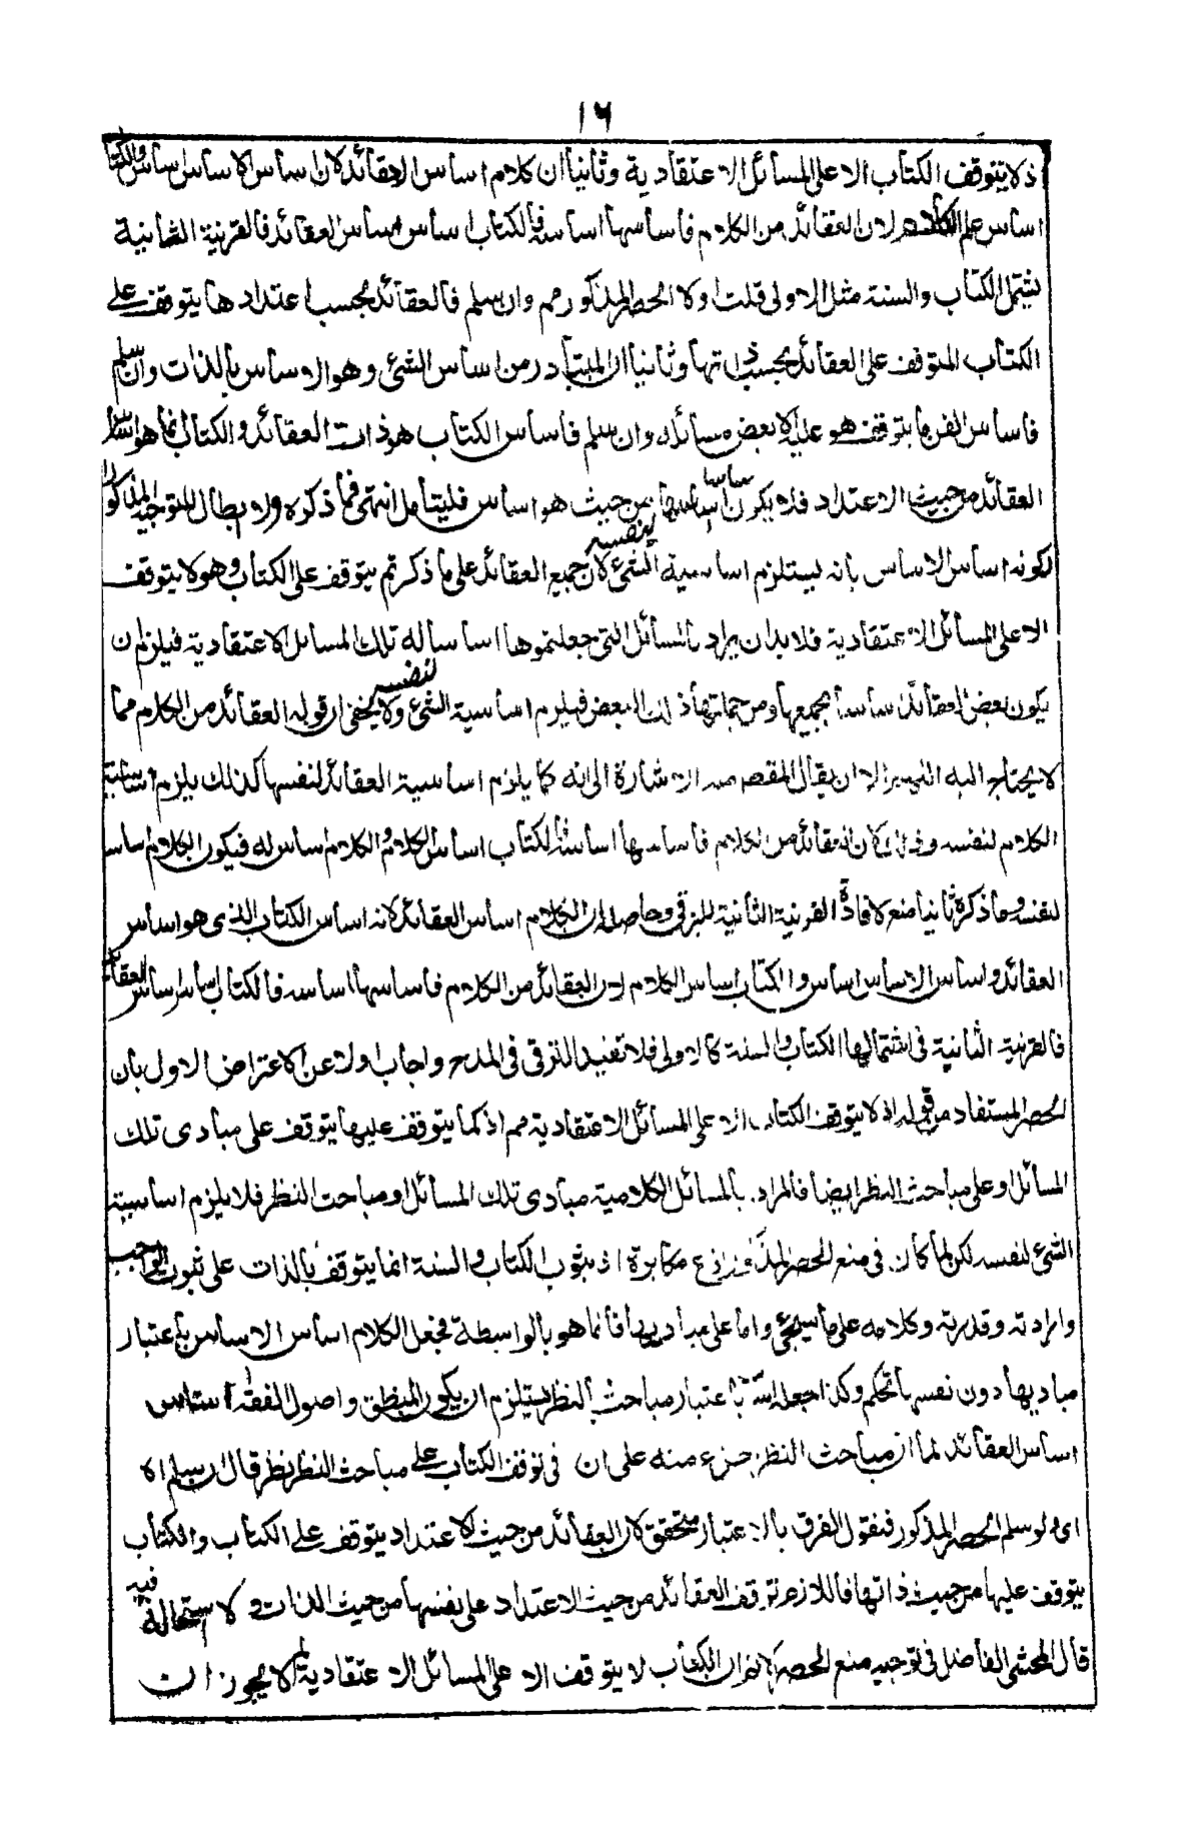 ١٦
ذ لا يتوقف الكتاب الا على المسائل الاعتقادية وثانيا ان كلام اساس العقائد لان اساس الاساس اساس والكتاب
اساس علم الكلام لان العقائد من الكلام فاساسها اساسه فالكتاب اساس اساس العقائد فالقرنية الثانية
يشتمل الكتاب والسنة مثل الاولى قلت اولا الحصر المذكور مم وان سلم فالعقائد بحسب اعتدادها يتوقف على
الكتاب المتوقف على العقائد بحسب ذاتها وثانيا ان المتبادر من اساس الشئ وهو الاساس بالذات وان سلم
فاساس الفن ما يتوقف هو عليه لا بعض مسائله وان سلم فاساس الكتاب هو ذات العقائد والكتاب انما هو اساس
العقائد من حيث الاعتداد فلا يكون اساسا لاساسها من حيث هو اساس فليتامل انتهى فما ذكره اولا ابطال للتوجيه المذكور
لكونه اساس الاساس بانه يستلزم اساسية الشئ لنفسه لان جميع العقائد على ما ذكرتم يتوقف على الكتاب وهو لا يتوقف
الا على المسائل الاعتقادية فلا بد ان يراد بالمسائل التى جعلتموها اساسا له تلك المسائل الاعتقادية فيلزم ان
يكون بعض العقائد اساسا لجميعها ومن جملتها ذلك البعض فيلزم اساسية الشئ لنفسه ولا يخفى ان قوله العقائد من الكلام مما
لا يحتاج اليه التفسير الا ان يقال المقصود منه الاشارة الى انه كما يلزم اساسية العقائد لنفسها كذلك يلزم اساسية
الكلام لنفسه وذلك لان العقائد من الكلام فاساسها اساسه فالكتاب اساس الكلام والكلام اساس له فيكون الكلام اساسا
لنفسه وما ذكره ثانيا منع لافادة القرنية الثانية للترقى وحاصله ان الكلام اساس العقائد لانه اساس الكتاب الذى هو اساس
العقائد واساس الاساس اساس والكتاب اساس الكلام لان العقائد من الكلام فاساسها اساسه فالكتاب اساس اساس العقائد
فالقرنية الثانية فى اشتمالها الكتاب والسنة كالاولى فلا تفيد الترقى فى المدح واجاب اولا عن الاعتراض الاول بان
الحصر المستفاد من قوله اذ لا يتوقف الكتاب الا على المسائل الاعتقادية مم اذ كما يتوقف عليها يتوقف على مبادى تلك
المسائل او على مباحث النظر ايضا فالمراد بالمسائل الكلامية مبادى تلك المسائل او مباحث النظر فلا يلزم اساسية
الشئ لنفسه لكن لما كان فى منع الحصر المذكور نوع مكابرة اذ ثبوت الكتاب والسنة انما يتوقف بالذات على ثبوت الواجب
وارادته وقدرته وكلامه على ما سيجئ واما على مباديها فانما هو بالواسطة فجعل الكلام اساس الاساس باعتبار
مباديها دون نفسها تحكم وكذا جعله باعتبار مباحث النظر يستلزم ان يكون المنطق واصول الفقه اساس
اساس العقائد لما ان مباحث النظر جزء منه على ان فى توقف الكتاب على مباحث النظر نظر قال ان سلم اه
اى لو سلم الحصر المذكور فنقول الفرق بالاعتبار متحقق لان العقائد من حيث الاعتداد يتوقف على الكتاب والكتاب
يتوقف عليها من حيث ذاتها فاللازم توقف العقائد من حيث الاعتداد على نفسها من حيث الذات ولا استحالة فيه
قال المحشى الفاضل فى توجيه منع الحصر لا نم ان الكتاب لا يتوقف الا على المسائل الاعتقادية لم لا يجوز ان